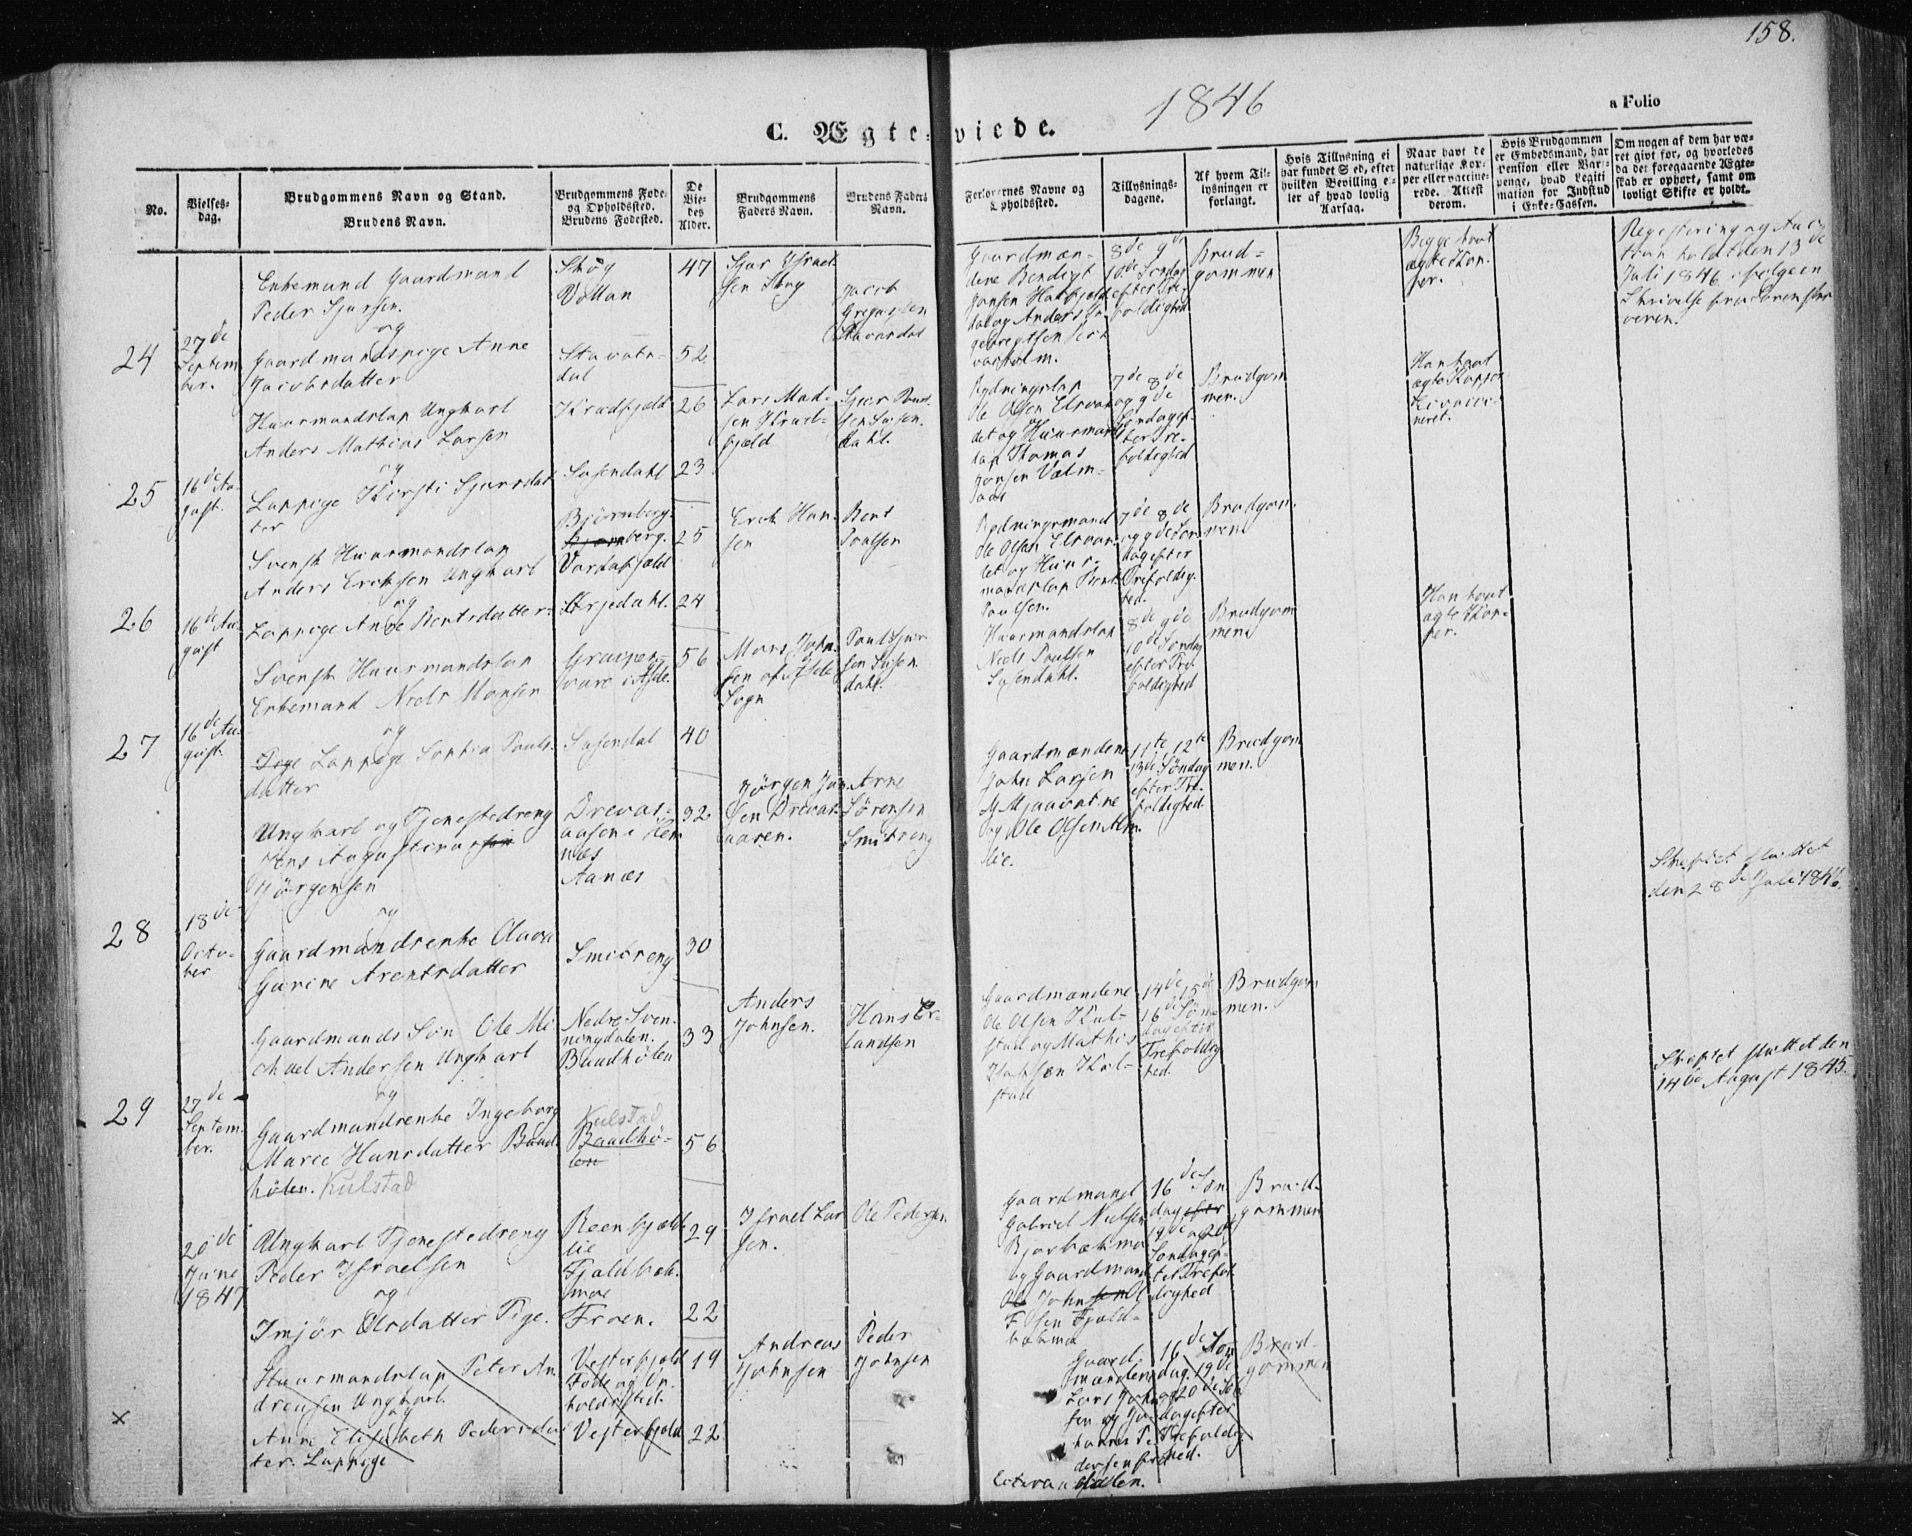 158.
1846
a Folio
C. Ægte-viede.
No.
Vielses-
dag.
Brudgommens Navn og Stand.
Brudens Navn.
Brudgommens Føde-
og Opholdssted.
Brudens Fødested.
De
Vie-
des
Alder.
Brudgommens
Faders Navn.
Brudens Faders
Navn.
Forlovernes Navne og
Opholdssted.
Tillysnings-
dagene.
Af hvem Til-
lysningen er
forlangt.
Hvis Tillysning ei
har fundet Sted, efter
hvilken Bevilling el-
ler af hvad lovlig
Aarsag.
Naar havt de
naturlige Kop-
per eller vaccine-
rede. Attest
derom.
Hvis Brudgommen
er Embedsmand, har
Pension eller Var-
penge, hvad Legiti
mation for Indskud
i Enke-Cassen.
Om nogen af dem har væ-
ret givt før, og hvorledes
da det foregaaende Ægte-
skab er ophørt, samt om
lovligt Skifte er holdt.
24
27de
Septem-
ber.
Enkemand Gaardmand
Peder Sjursen.
og
Gaardmandspige Anne
Jacobsdatter
Skog
Vollan
Stavatn-
dal
47
52
Sjur Israel-
sen Skog
Jacob
Gregusen
Gaardmæn-
dene Bendigt
Jonsen Hatfjeld-
dal og Anders In-
gebregtsen
8de 9de
10de Søndag
efter Tre-
foldighed
Brud-
gommen
Begge havt
ægte Kop-
per.
Registering og Auc-
tion holdt den 13de
Juli 1846 ifølge en
Skrivelse fra Sorenskri-
veren.
25
16de Au-
gust.
Huusmandslap Ungkarl
Anders Mathias Larsen
og
Lappige Kirsti Sjursdat
ter
Krudfjeld
Susendahl
26
23
Lars Mad-
sen Krud-
fjeld
Sjur Paul-
sen Susen-
dahl.
Rydningslap
Ole Olsen Elsvan-
det og Huusmand
lap Thomas
Jonsen
7de 8de
og 9de
Søndag ef-
ter Tre-
foldighed
Brudgom
men.
Han havt
ægte Kopper
hun vacci-
neret.
26
16de Au-
gust
Svensk Huusmandslap
Anders Ericksen Ungkarl
og
Lappige Anne Bentsdatter
Bjørnberg.
Vardofjeld
25
24
Erik Han-
sen
Bent
Poulsen
Rydningsmand
Ole Olsen Elsvan-
det og Huus-
mandslap Bent
Paulsen.
7de 8de
og 9de Søn-
dag efter
Trefoldig-
hed.
Brudgom-
men.
27
16de Au-
gust.
Svensk Huusmandslap
Enkemand Niels Monsen
og
Lappige Sophia Pauls-
datter
Susendal
56
40
Mons John-
sen af Åsele
Sogn
Paul Sjur
sen Susen-
dahl.
Huusmandslap
Niels Paulsen
Susendahl.
8de 9de
10de Søndag
efter Tre-
foldighed
Brudgom
men.
Han havt
ægte Kop-
per.
28
18de
Octo-
ber
Ungkarl og Tjenestedreng
Jens Augustinus
Jørgensen
og
Gaardmandsenke Olava
Gurine Arentsdatter
Drevas-
aasen i Hem-
næs
Aanes
Smisreng
32
30
Jørgen Jon
sen Drevas-
aasen.
Arne
Sørensen
Smisreng
Gaardmændene
John Larsen
Mjaavatne
og Ole Olsen Alm-
lie.
11te, 12te
13de Søndag
efter Tre-
foldighed
Brudgom
men.
Skiftet sluttet
den 28de Juli 1846.
29
27de
Septem-
ber.
Gaardmands Søn Ole Mi-
chael Andersen Ungkarl
og
Gaardmandsenke Ingeborg
Marie Hansdatter Baad-
hølen. Kulstad
Nedre Sven-
ningdalen.
Baadhølen
Kulstad
Baadhø-
len
33
56
Anders
Johnsen.
Hans Er-
landsen
Gaardmændene
Ole Olsen Kul-
stad og Mathis
Jakobsen Kul-
stad
14de 15de
16de Søn-
dag efter
Trefoldig
hed.
Brudgom
men.
Skiftet sluttet den
14de August 1845.
20de
June
1847
Ungkarl Tjenestedreng
Peder Israelsen
og
Imjør Olsdatter Pige.
Reenfjeld
lie
Fjeldbæk-
moe
Troen.
29
22
Israel Lar
sen.
Ole Pedersen
Gaardmand
Gabriel Nielsen
Bjørbækmo
og Gaardmand
John Ol-
sen Fjeld-
bækmo
16de Søn
dag efter
19de og 20de
Søndag ef-
ter Trefol-
dighed
Brud-
gommen
x
Huusmandslap Peter An
dreasen Ungkarl.
og
Ane Elisabeth Pedersdat
ter. Lappige
Vesterfjeld
Føde og Op-
holdssted.
Vesterfjeld
19
22
Andreas
Johnsen
Peder
Johnsen
Gaard-
mændene
Lars John-
sen og Jo-
hannes Pe-
dersen
16de Søn
dag. 19de
og 20de Søn
dag efter
Trefoldig
hed.
Brud-
gommen